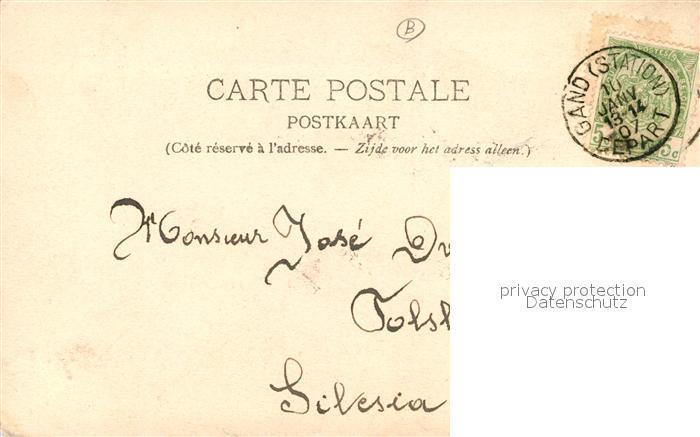 B
CARTE POSTALE
POSTKAART
(Côté réservé à l'adresse. — Zijde voor het adress alleen.)
GAND (STATION)
10
JANV
13-14
07
DEPART
5c
Monsieur José
privacy protection
Datenschutz
Silesia